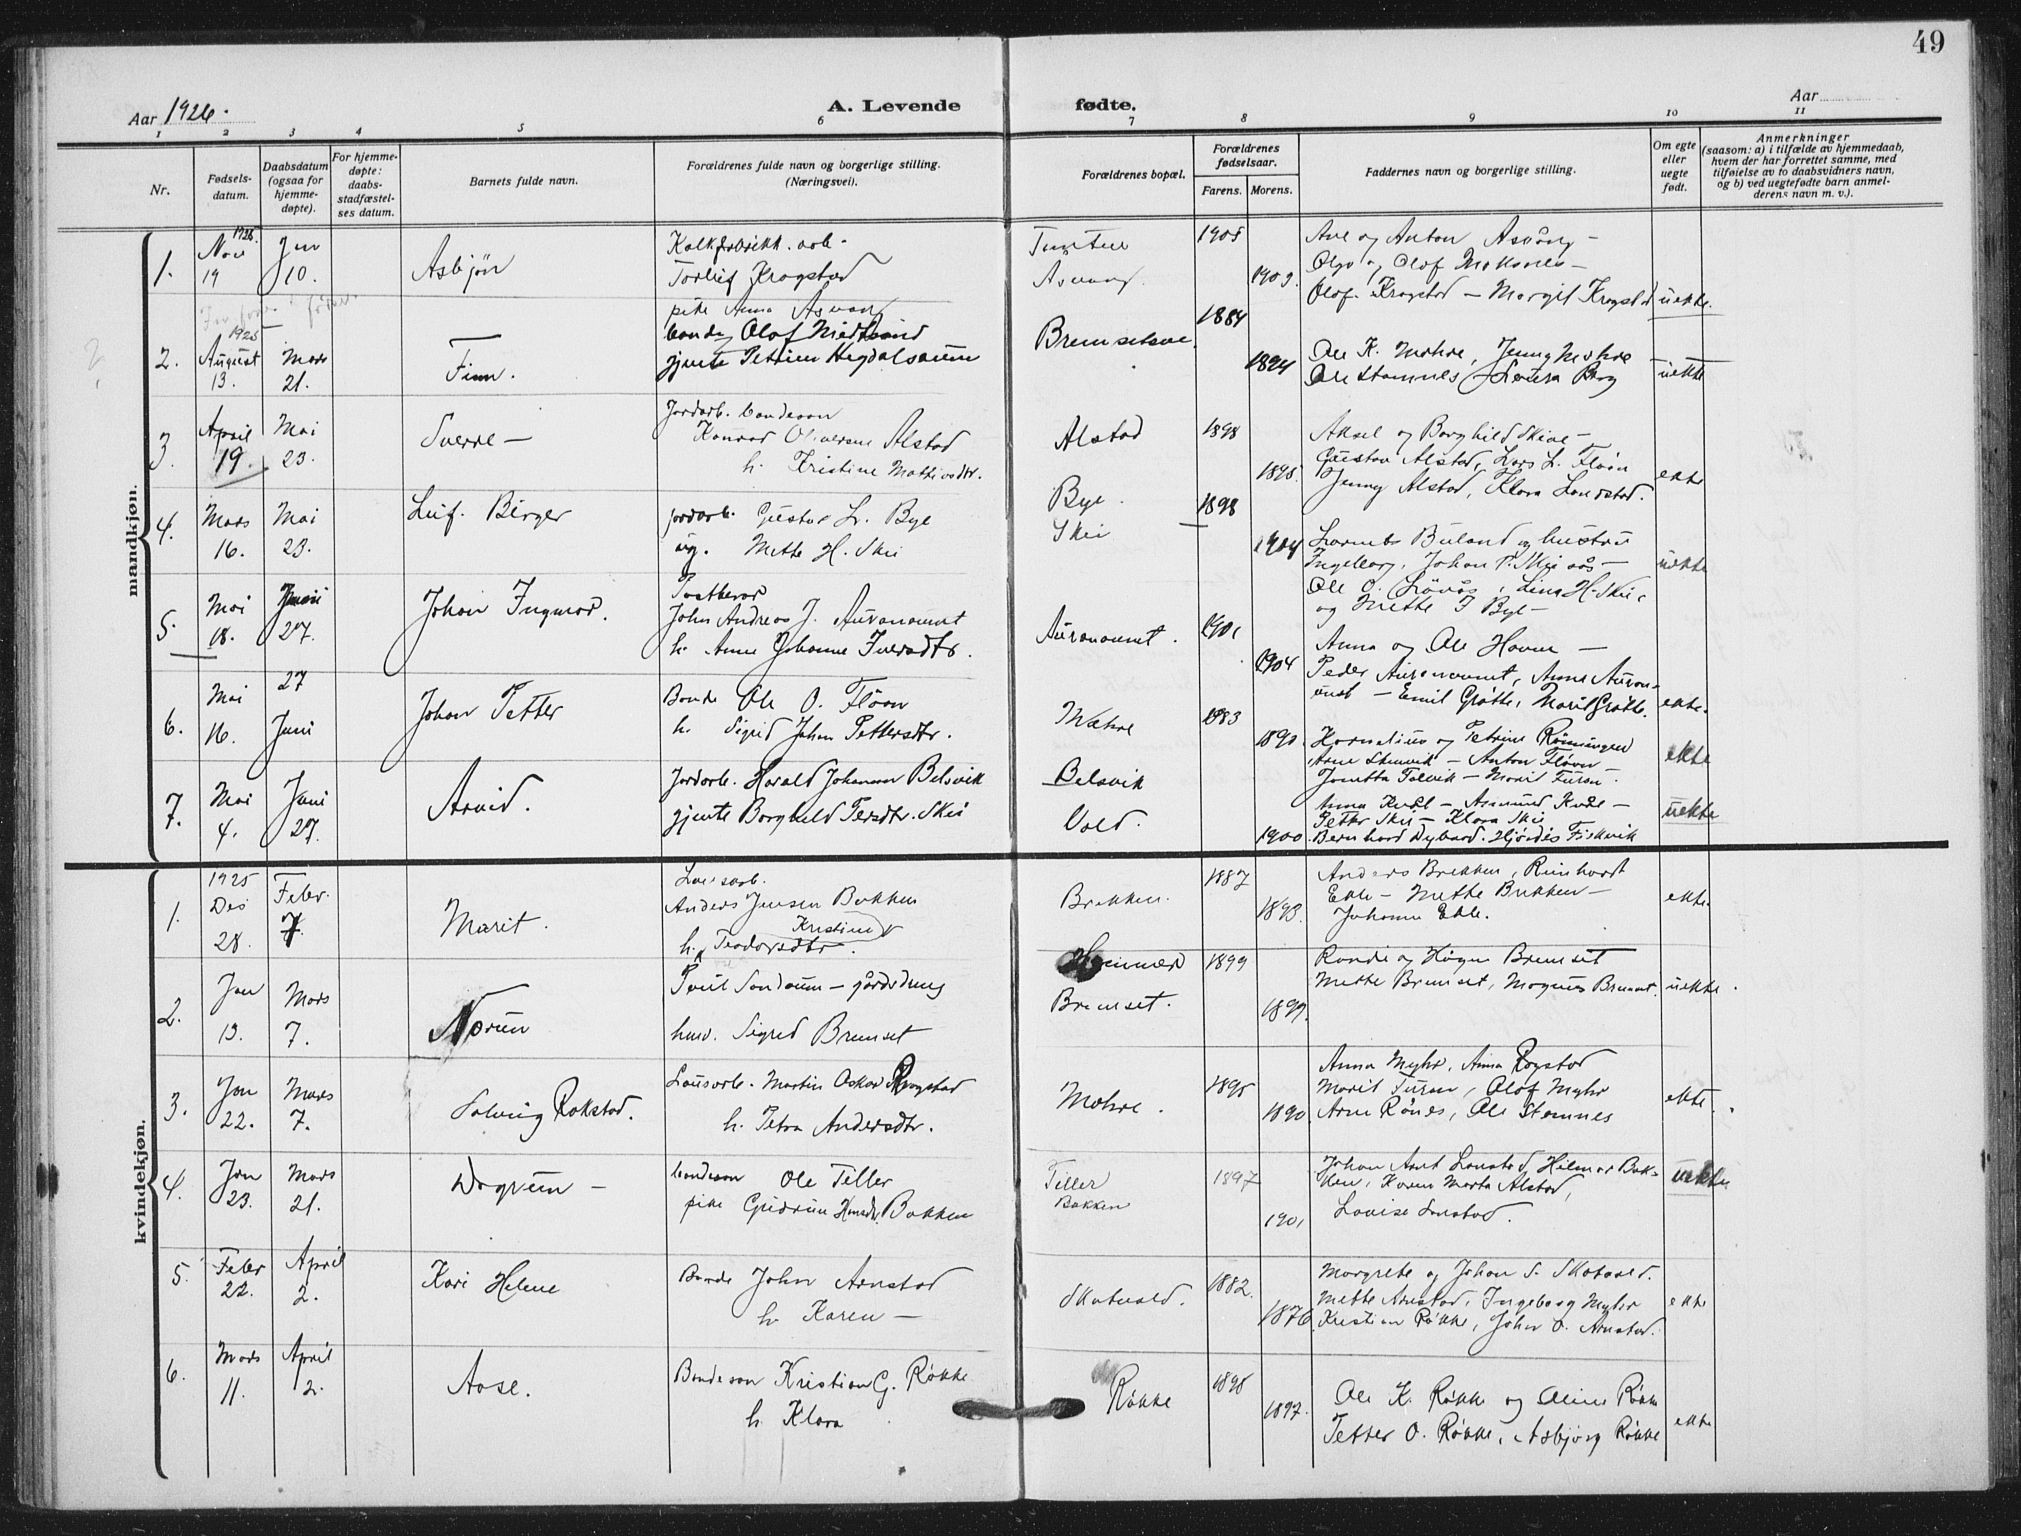 49
Aar 1926. A. Levende fødte. Aar
1 2 3 4 5 6 7 8 9 10 11
Nr.
Fødsels-
datum.
Daabsdatum
(ogsaa for
hjemme-
døpte).
For hjemme-
døpte:
daabs-
stadfæstel-
ses datum.
Barnets fulde navn.
Forældrenes fulde navn og borgerlige stilling.
(Næringsvei).
Forældrenes bopæl.
Forældrenes
fødselsaar.
Farens. Morens.
Faddernes navn og borgerlige stilling.
Om egte
eller
uegte
født.
Anmerkninger
(saasom: a) i tilfælde av hjemmedaab,
hvem der har forrettet samme, med
tilføielse av to daabsvidners navn,
og b) ved uegtefødte barn anmel-
derens navn m. v.).
mandkjøn.
1. Nov 1925 19 Jan 10. Asbjön
Torleif Krogstad
pike Anna Asvang
Asvang
1905 1903.
og Anton Asvang –
Olga og Olof Moksnes –
Olof Krogstad – Margit Krogstad uekte.
2. 1925 August 13. Mars 21. Finn.
bonde Olof
gjente Petrine Hegdalsaunn
1884 1894
Ole K. Mæhre, Jenny Mæhre
Ole Stamnes – Lovisa Berg uekte
3. April 19. Mai 23. Sverre –
Jordarb. bondesøn
Konrad Oliversen Alstad
h. Kristine
Alstad
1898 1895.
Aksel og Borghild Skive –
Gustav Alstad, Lars L. Flöan
Jenny Alstad, Klara Lonstad. ekte
4. Mars 16. Mai 23. Leif Birger
jordarb. Gustav L. Bye
ug. Mette H. Skei
Bye.
Skei
1898 1904
Buland og hustru
Ingeborg, Johan P. Skei
Ole O. , Lina H. Skei,
og Mette J Bye – uekte
5. Mai 18. Juni 27. Johan Ingmar.
John Andreas J. Auranaunet
h. Anne Johanne Iversdtr.
Auranaunet.
1901 1904
Anna og Ole Haven –
Peder Auranaunet, Anne Auran-
aunet – Emil Grøtte, Marit Grøtte. ekte.
6. Mai 16. 27 Juni Johan Petter
Bonde Ole O. Flöan
h. Sigrid Johan Pettersdtr.
Mæhre
1883 1890.
Kornelius og Petrine Rönningen
Arne – Anton Flöan
– Marit ekte
7. Mai 4. Juni 27. Arvid.
Jordarb. Harald Johansen Belsvik
gjente Borghild Persdtr. Skei
Belsvik
Vold.
1900
Anna – Asmund –
Petter Skei – Klara Skei
Bernhard . Hjördis Fiskvik uekte
kvindekjøn.
1. 1925 Des 28. Febr. 7. Marit.
Anders Jensen Bakken
Kristine
h. Teodorsdtr.
Brekken.
1887 1893.
Anders Brekken, Reinhardt
Ekle – Mette Brekken –
Johanna Ekle. ekte.
2. Jan 13. Mars 7. Norun
Paul Sandaunn –
Sigrid Bremset
Bremset.
1899 1899.
Randi og Bremset
Mette Bremset, Magnus Bremset. uekte.
3. Jan 22. Mars 7. Solveig Rokstad.
Martin Oskar Rogstad
h. Petra Andersdtr.
Mæhre.
1895 1890.
Anna Myhr, Anna Rogstad
Marit , Olof Myhr
Arne Rønes, Ole Stamnes ekte.
4. Jan 23. Mars 21. Dagrun –
bondesøn Ole Tiller
pike Gudrun Bakken
Tiller
Bakken
1897 1901
Johan Lonstad, Hilmar Bak-
ken, Karen Marta Alstad,
Lovise Lonstad. uekte
5. Febr 22. April 2. Kari Helene
Bonde John Arnstad
h. Karen –
Skatvald.
1882. 1876.
Margrete og Johan S. Skatvald.
Mette Arnstad, Ingeborg Myhr
Kristian Røkke, John O. Arnstad. ekte
6. Mars 11. April 2. Aase.
Bondesøn Kristian G. Røkke
h. Klara
Røkke
1895 1897.
Ole K. Røkke og Oline Røkke
Petter O. Røkke, Asbjörg Røkke ekte